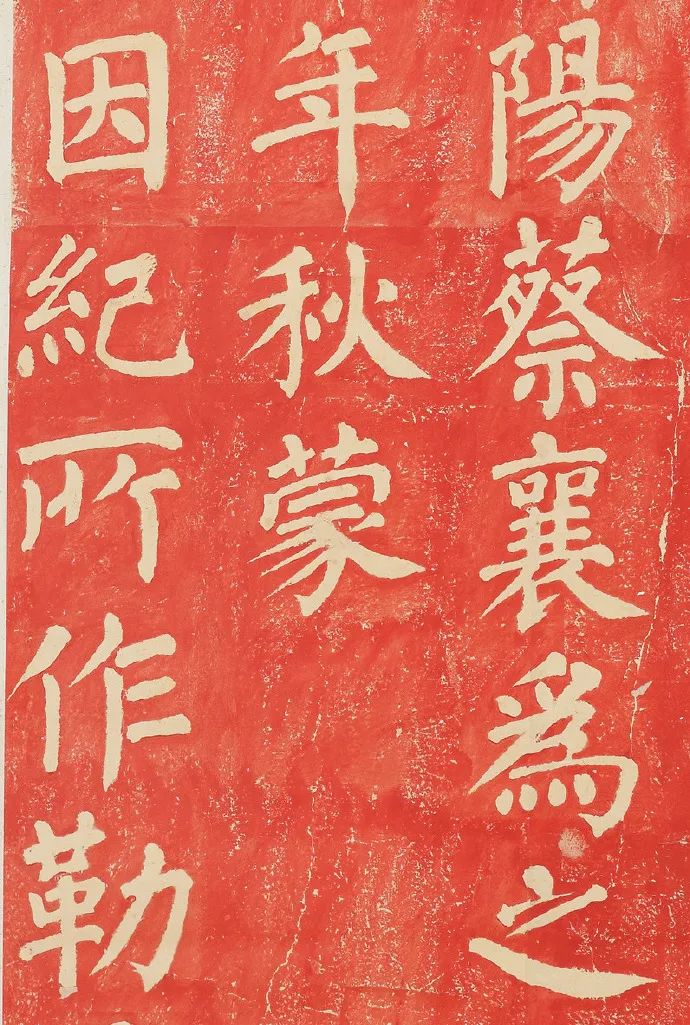 陽蔡襄為之
年秋蒙
因紀所作勒